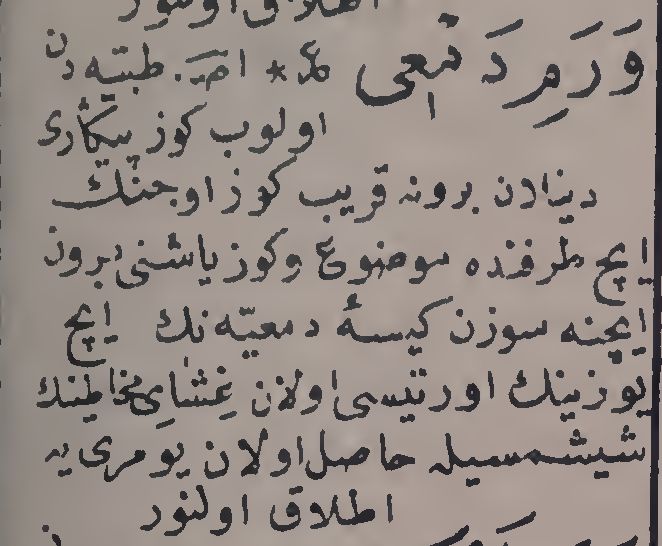 اطلاق اولنور
وَرَمِ دَمْعِى ع * امر. طبيّه دن
اولوب كوز پيكارى
دينلان برونه قريب كوز اوجنك
ايچ طرفنده موضوع وكوز ياشنى برون
ايچنه سوزن كيسهٔ دمعيّه نك ايچ
يوزينك اورتيسى اولان غِشاىِ مخاطينك
شيشمسيله حاصل اولان يومرى يه
اطلاق اولنور